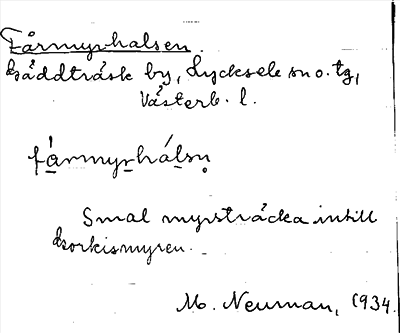 Fårmyrhalsen.
Gäddträsk by, Lycksele sn o. tg,
Västerb. l.
fårmyrhálsn̥
Smal myrsträcka intill
Korkismyren.
M. Neuman, 1934.